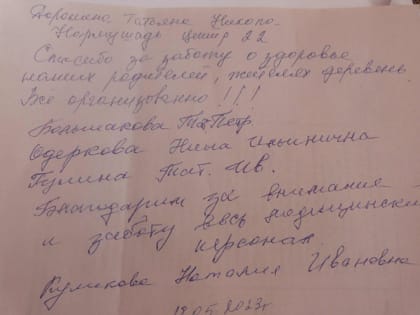 Доронина Татьяна Никола-
Кормушадь центр 22
Спасибо за заботу о здоровье
наших родителей, жителях деревень
Все организованно !!!
Большакова Тат Петр.
Одеркова Нина Ильинична
Гулина Тат. Ив.
Благодарим за внимание
и заботу весь медицински
персонал.
Куликова Наталия Ивановна
18.05.2023г